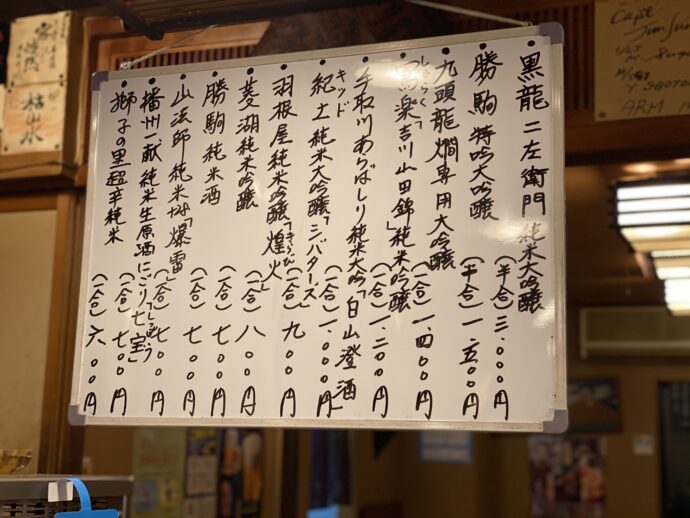 黒龍 二左衛門 純米大吟醸 (半合) 三.〇〇〇円
勝駒 特吟大吟醸 (半合) 一.五〇〇円
九頭龍 燗専用大吟醸 (一合) 一.四〇〇円
吉川山田錦」純米吟醸 (一合) 一.二〇〇円
手取川あらばしり純米大吟 白山澄酒」
キッド
紀土 純米大吟醸「シバタース」 (一合) 一.〇〇〇円
羽根屋純米吟醸「煌火」 (一合) 九〇〇円
きらび
菱湖純米吟醸 (一合) 八〇〇円
勝駒 純米酒 (一合) 七〇〇円
山法師 純米「爆雷」 (一合) 七〇〇円
播州一献 純米生原酒にごり「七宝」 (一合) 七〇〇円
しっぽう
獅子の里 超辛純米 (一合) 六〇〇円
枯山水
Capt.
ARM